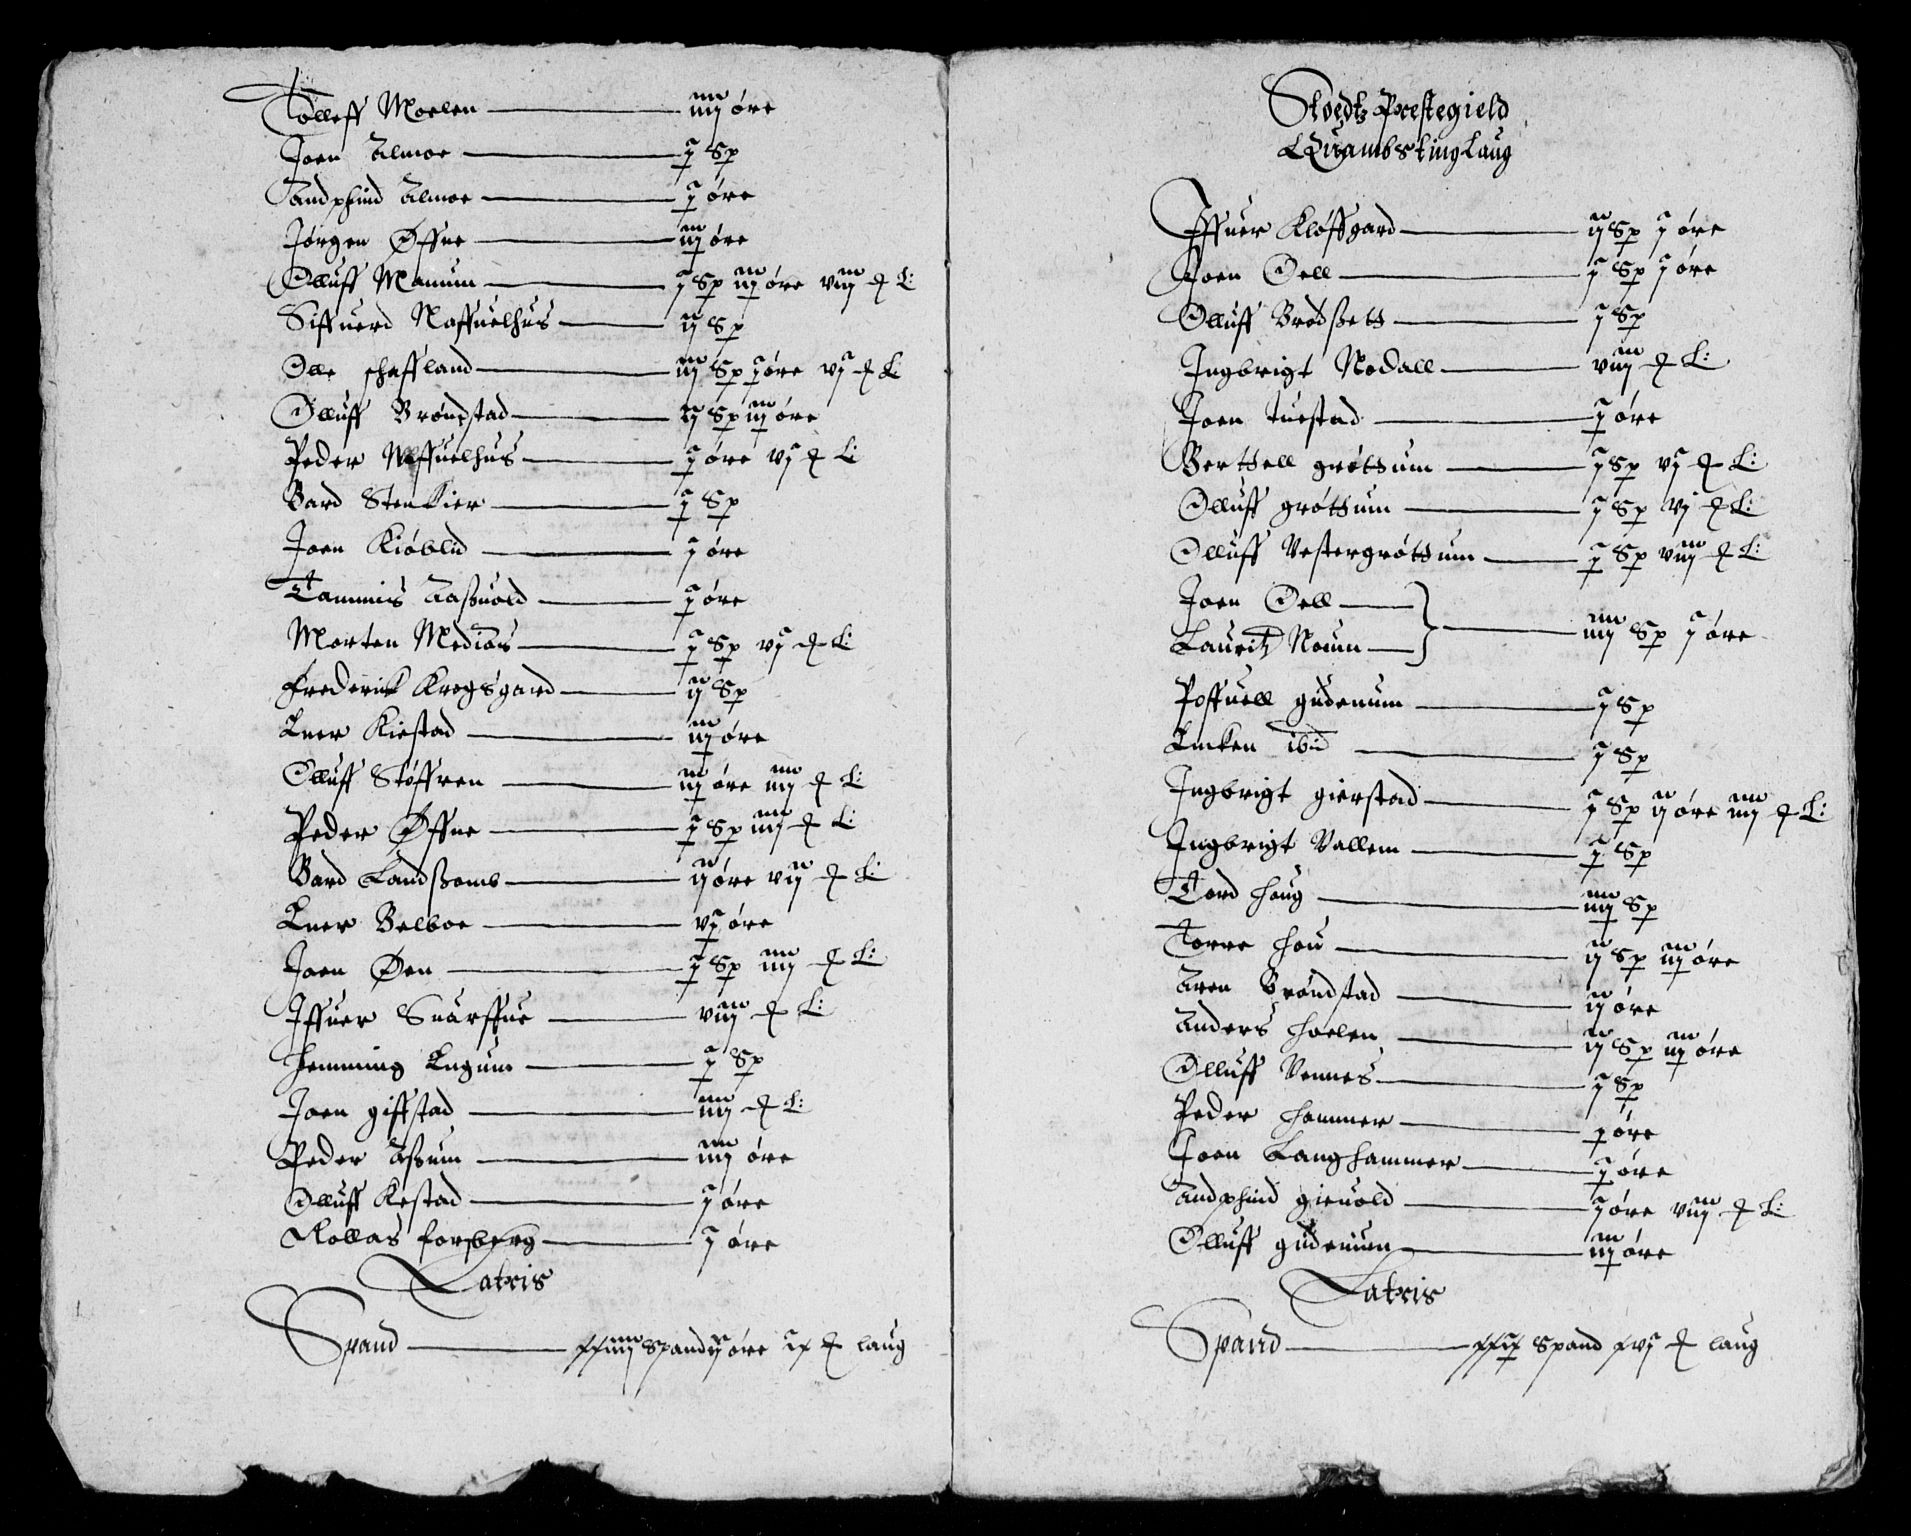 Tolleff Moelen — iiij øre
Joen Almoe — j Sp
Andphind Almoe — j øre
Jørgen Øffne — iij øre
Olluff Manum — j Sp iiij øre viij ₰ L:
Siffuerd Naffuelhus — ij Sp
Olle schaffland — iij Sp j øre vj ₰ L:
Olluff Brøndstad — ij Sp iij øre
Peder Naffuelhus — j øre vj ₰ L:
Bard Stenkier — j Sp
Joen Kiøblid — j øre
Tammis Aasuold — j øre
Morten Mediaas — j Sp vj ₰ L:
Frederick Krogsgard — ij Sp
Euer Kiestad — iij øre
Olluff Støffren — iij øre iiij ₰ L:
Peder Øffne — j Sp iiij ₰ L:
Bard Landßemb — ij øre vij ₰ L:
Euer Belboe — vj øre
Joen Øen — j Sp iiij ₰ L:
Iffuer Suarffue — viij ₰ L:
Hemming Engum — j Sp
Joen giffstad — iiij ₰ L:
Peder Aßum — iiij øre
Olluff Kestad — j øre
Nollas forsberg — j øre
Latris
Spand — xxiiij Spand ij øre ix ₰ laug
Stoedtz Prestegield
Quambs tinglaug
Iffuer Kløffgard — ij Sp j øre
Joen Oell — j Sp j øre
Olluff Brødßett — j Sp
Ingbrigt Nodall — viij ₰ L:
Joen tuestad — j øre
Berttell grøttum — j Sp vj ₰ L:
Olluff grøttum — j Sp vj ₰ L:
Olluff Vestergrøttum — j Sp viij ₰ L:
Joen Oell —
Lauritz Noum — } — iiij Sp j øre
Poffuell gudemum — j Sp
Encken ibid — j Sp
Ingbrigt gierstad — j Sp ij øre iiij ₰ L:
Ingbrigt Vallem — j Sp
Tord Houg — iiij Sp
Torre Hou — ij Sp iij øre
Aren Brøndstad — ij øre
Anders Hoelen — ij Sp iij øre
Olluff Vennes — j Sp
Peder Hammer — j øre
Joen Langhammer — j øre
Andphind gieuold — j øre viij ₰ L:
Olluff gudemum — iij øre
Latris
Spand — Spand xvj ₰ laug